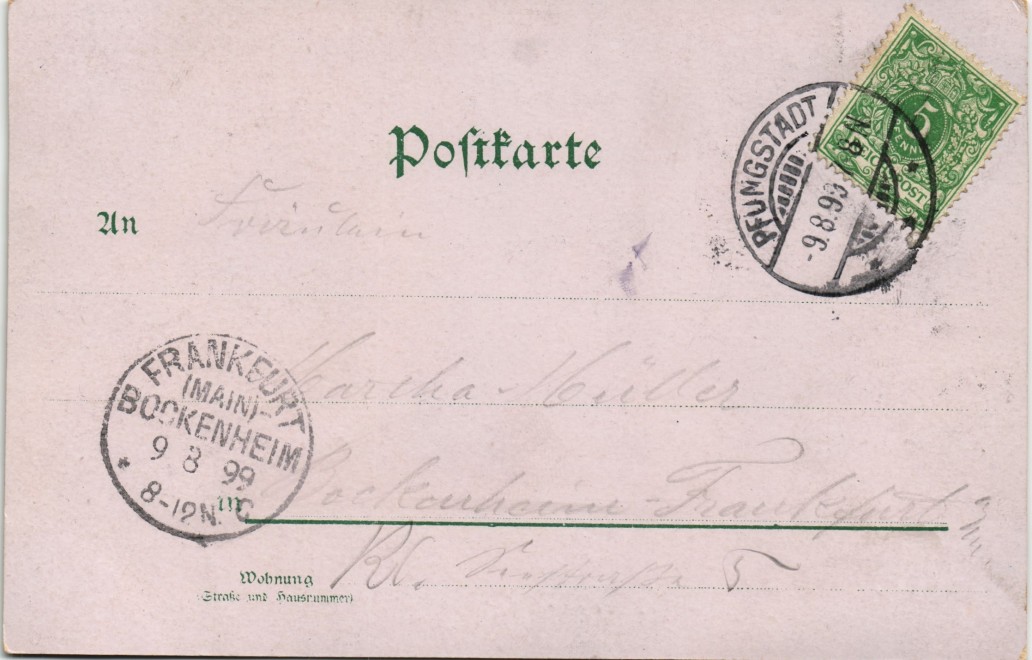 Postkarte
5
PFENNIG
POST
PFUNGSTADT
-9.8.99
8 N
An Fräulein
Martha Müller
FRANKFURT
(MAIN)-
BOCKENHEIM
9 8 99
8-12N. C
in Bockenheim-Frankfurt a/M
Wohnung
(Straße und Hausnummer)
5